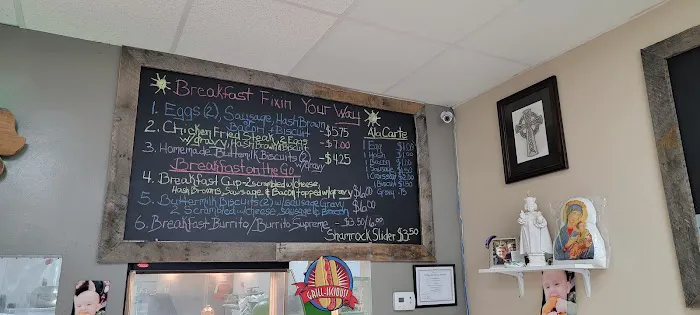 Breakfast Fixin Your Way
1. Eggs (2), Sausage, Hash Brown
Bacon + Biscuit - $5.75
2. Chicken Fried Steak & Eggs
w/gravy Hash Brown Biscuits - $7.00
3. Homemade Buttermilk Biscuits (2)
w/gravy - $4.25
Breakfast on the Go
4. Breakfast Cup - 2 scrambled w/cheese,
Hash Browns, Sausage, & Bacon topped w/gravy $6.00
5. Buttermilk Biscuits (2) w/ sausage Gravy
2 Scrambled w/cheese, Sausage & Bacon $6.00
6. Breakfast Burrito/Burrito Supreme - $3.50/6.00
Ala Carte
1 Egg $1.00
1 Hash
1 Bacon
1 Sausage
1 Croissant $2.00
1 Biscuit $1.50
Gravy .75
Shamrock Slider $3.50
GRILL-ICIOUS!